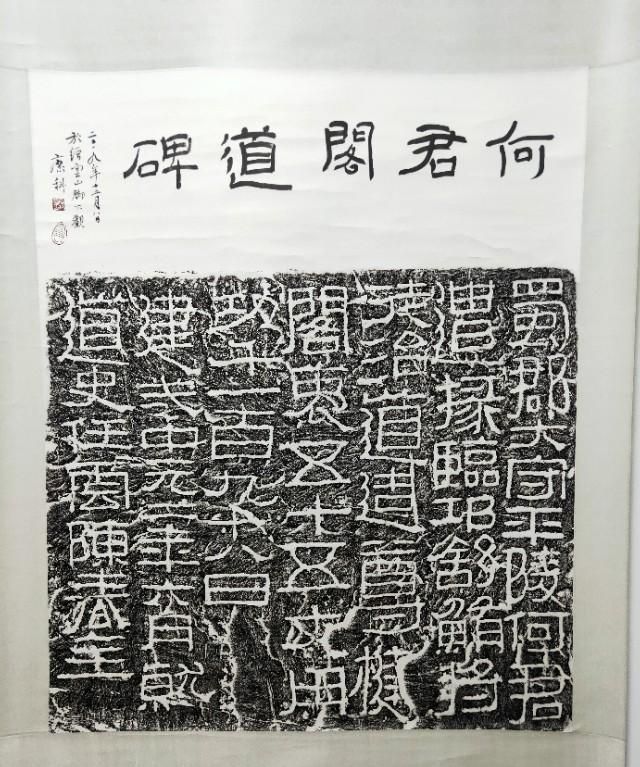 何君閣道碑
二〇一九年十二月八日
於縉雲山腳下觀
蜀郡大守平陵何君
遣掾臨邛舒鮪將
徒治道造尊楗
閣袤五十五丈用
功千一百九十八日
建武中元二年六月就
道史任雲陳春主